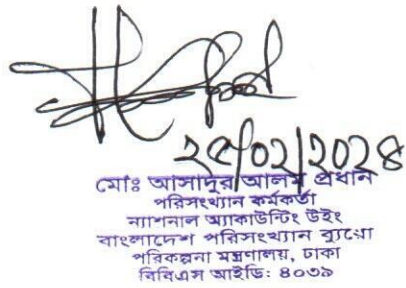 ২৫/০২/২০২৪
মোঃ আসাদুর আলম প্রধান
পরিসংখ্যান কর্মকর্তা
ন্যাশনাল অ্যাকাউন্টিং উইং
বাংলাদেশ পরিসংখ্যান ব্যুরো
পরিকল্পনা মন্ত্রণালয়, ঢাকা
বিবিএস আইডি: ৪০৩৯